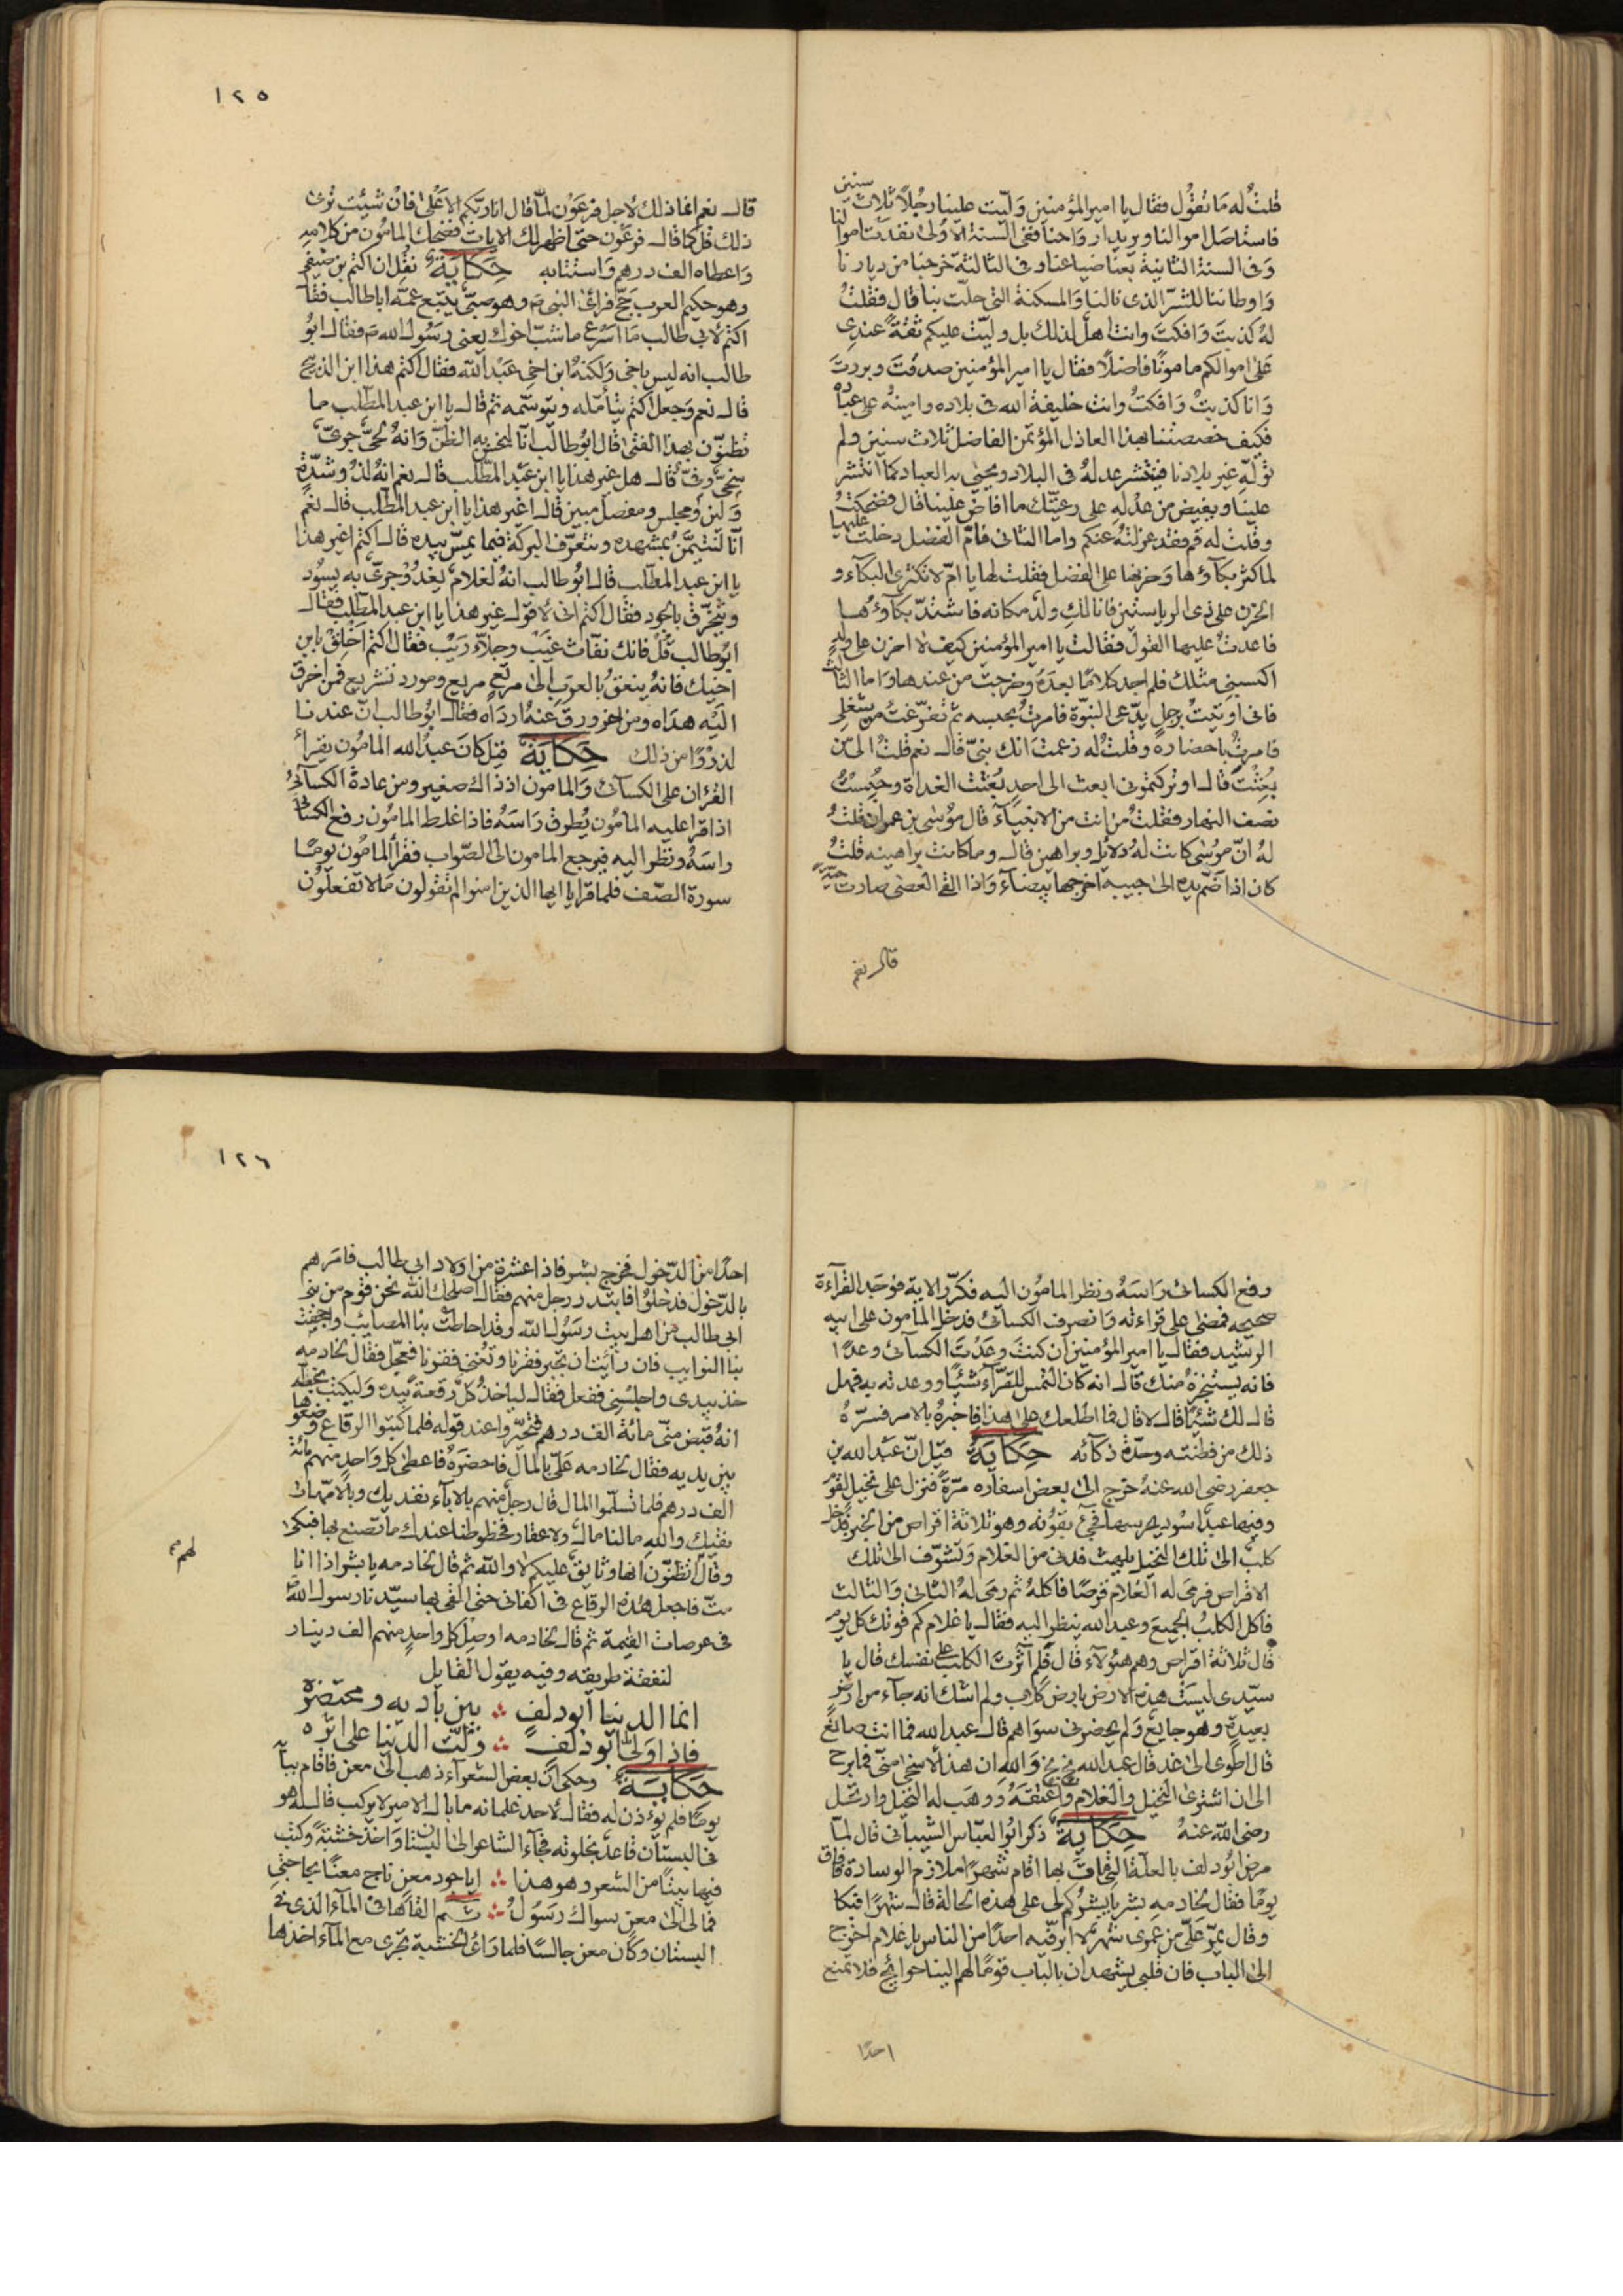 سنين
قلتُ له مَا تقُوُل فقال يا امير المؤمنين وَلّيت علينا رجُلاً ثلاث
فاستاصَل اموالنا ويريد ارواحنا ففى السّنة الاوُلى نفدَت اموالنا
وَفى السنة الثانية بعنا ضياعنا وفى الثالثة خرجنا من ديارنا
وَاوطاننا للشرّ الذى نالنا وَالمسكنة التى حلّت بنا قال فقلتُ
لهُ كذبتَ وَافكتَ وانت اهلٌ لذلك بل وليّتُ عليكم ثقةً عندى
عَلى اموالكم مامونًا فاضلاً فقال يا امير المؤمنين صدقتَ وبررتَ
وَانا كذبتُ وَافكتُ وانت خليفة الله فى بلاده وامينهُ على عبا ده
فكيف خصصتنا بهذا العادل المؤتمن الفاضل ثلاث سنين ولم
تولّهِ غير بلادنا فينتشر عدلهُ فى البلاد ويحيى به العباد كما انتشر
علينا ويفيض من عدْلهِ على رعيّتك ما افاضَ علينا قال فضحكتُ
وقلت له قم فقد عزلتهُ عنكم واما الثانى فامّ الفضل دخلت عليها
لما كثر بكاؤها وَحزنها على الفضل فقلت لها يا امّ لا تكثرى البكآء و
الحزن على ذى الرياستين فانا لكِ ولدٌ مكانه فاشتدّ بكاوُها
فاعدتُ عليها القول فقالت يا امير المؤمنين كيف لا احزن على ولدٍ
اكسبنى مثلك فلم اجد كلامًا بعدَهُ وخرجت من عندها وَاما الثالث
فانى اوتيتُ برجلٍ يدّعى النبوّة فامرتُ بحبسه ثم تفرّغتُ من شغلى
فامرتُ باحضاره وقلتُ له زعمتَ انك نبىّ قالـ نعم قلتُ الى مَن
بُعِثْتَ قالـ اوتركتمونى ابعث الى احدٍ بُعثتُ الغداة وحُبِستُ
نصف النهار فقلتُ من انت من الانبيآء قال موُسى بن عمران قلتُ
لهُ انّ موُسى كانت لهُ دلائل وبراهين قالـ وما كانت براهينه قلتُ
كان اذا ضَمّ يده الى جيبه اخرجها بيضآء وَاذا القى العصى صارت حيّةً
قالـ نعم
١٢٥
قالـ نعم انما ذلك لاجل فرعَوْن لمّا قال انا ربّكم الاعَلى فان شئت
ذلك قل كما قالـ فرعَوْن حتى اظهر لك الايات فضحك المامُون من كلامه
وَاعطاه الف درهم وَاستتابه حِكَايَة نقل ان اكثم بن صيفى
وهو حكيم العرب حجّ فرائ النبى م وهو صبىّ يتبع عمّه اباطالب فقال
اكثم لابى طالب مَا اسْرع ماشبّ اخوك يعنى رسُول الله م فقالـ ابوُ
طالب انه ليس باخى وَلكنهُ ابن اخى عَبْد الله فقال اكثم هذا ابن الذبيح
قالـ نعم وَجعل اكثم يتأمّله ويتوسّمه ثم قالـ يا ابن عبد المطّلب ما
تظنوّن بهذا الفتى قال ابوُطالب انّا لنحسن به الظنّ وَانهُ لحىٌّ جرىّ
سخىٌّ وفىّ قالـ هل غير هذا يا ابن عبْد المطّلب قالـ نعم انهُ لذوُ شدّةٍ
وَلينٍ ومجلسٍ ومفصلٍ مبين قالـ اغير هذا يا ابن عبد المطّلب قالـ نعم
انّا لنتيمّنُ بمشهده ونتعرّف البركة فيما يمسّ بيده قالـ اكثم اغير هذا
يا ابن عبد المطّلب قالـ ابوُطالب انهُ لغلامٌ يغدُو وجرىٌّ به يسُود
ويتخرّق بالجود فقال اكثم انى لاقولـ غير هذا يا ابن عبد المطّلب فقالـ
ابوُطالب قُلْ فانك نفّاث غيَبْ وجلاّء رَيَبْ فقال اكثم اَخْلِقْ بابن
اخيك فانهُ ينعقُ بالعربِ الى مرتعٍ مريع ومورد تشريع فمن
اليْه هدَاه ومن عنهُ ارداه فقالـ ابوُطالب انّ عندنا
لذروًا من ذلك حِكَايَةٌ قيل كَانَ عبدُ الله المامُون يقراُ
القُرْان على الكسآئى وَالمامون اذ ذاك صَغير ومن عادة الكسآئىُ
اذا قرا عليه المامُون يُطرق رَاسَهُ فاذا غلط المامُون رفع الكسآئى
راسَهُ ونظر اليه فيرجع المامون الى الصّواب فقرأ المامُون يومًا
سورة الصّف فلما قرا يا ايها الذين امنوا لم تقولون مَا لا تفعلون
رفع الكسائى رَاسَهُ ونظر المامُون اليه فكرّر الاية فوَجَد القرآءة
صحيحه فمضى على قراءته وَانصرف الكسائى فدخل المامون على ابيه
الرشيد فقالـ يا امير المؤمنين ان كنتَ وعَدْتَ الكسآئى وعدًا
فانه يستنجزهُ منك قالـ انه كان التمس للقرّآء شئيًا ووعدته به فهل
قالـ لك شئيًا قالـ لا قال فما اطلعك على هذا فاخبرهُ بالامر فسرّهُ
ذلك من فطنته وحدّة ذكآئه حِكَايَةٌ قيل انّ عَبْد الله بن
جعفر رضى الله عنهُ خرج الى بعض اسفاره مرّةً فنزل على نخيل لقومٍ
وفيها عبدٌ اسود يحرسها فجئ بقوُته وهو ثلاثة اقراص من الخبز فدخل
كلبٌ الى تلك النخيل يلهث فدنى من الغلام وَتشوّف الى تلك
الاقراص فرمى له الغلام قرصًا فاكلهُ ثم رمى لهُ الثانى وَالثالث
فاكل الكلبُ الجميعَ وعبد الله ينظر اليه فقالـ يا غلام كم قوتك كل يوم
قال ثلاثة اقراص وهم هئولآء قال فلم آثرتَ الكلبَ على نفسك قال يا
سيّدى ليسَتْ هذه الارض بارض كلاب ولم اشك انه جآء من ارضٍ
بعيدة وهو جايع وَلم يحضرنى سوَاهم قالـ عبد الله فما انت صانع
قال اطْوى الى غد قال عبد الله بخ بخ وَاللهِ ان هذا لاسخى منّى فما برح
الى ان اشترى النخيل وَالغلام وَاعتقهُ ووهَب له النخيل وارتحل
رضى الله عنهُ حِكَايَةٌ ذكر ابوُ العبّاس الشيبانى قال لمّا
مرض ابُو دلف بالعلّة التى مات بها اقام شهرًا ملازم الوسادة فافاق
يومًا فقال لخادمهِ بشر يا بشر كم لى على هذه الحالة قالـ شهرًا فبكا
وقال يمرّ عَلىّ من عمرى شهرٌ لا ابرّ فيه احدًا من الناس يا غلام اخرج
الى الباب فان قلبى يشهد ان بالباب قومًا لهم الينا حوائج فلا تمنع
احدًا
١٢٦
احدًا من الدّخول فخرج بشر فاذا عشرة من اولاد ابى طالب فامَرهم
بالدّخول فدخلوُا فابتدر رجل منهم فقالـ اصلحك الله نحن قوم من بنى
ابى طالب من اهل بيت رسَوُل الله وقد احاطت بنا المصائب واجحفت
بنا النوايب فان رأيت ان تجبر فقرنا وتغنى فقرنا فعجّل فقال لخادمه
خذ بيدى واجلسنى ففعل فقالـ لياخذْ كلٌّ رقعةً بيده وَليكتب بخطّه
انهُ قبض منّى مائة الف درهم فتحيّروا عند قوله فلما كتبوا الرقاع وَضعوها
بين يديه فقال لخادمه علىّ بالمال فاحضرَهُ فاعطى كل وَاحدٍ منهم مائة
الف درهم فلما تسلّموا المال قال رجلٌ منهم بالابآء نفديك وبالامّهات
نقيك واللهِ ما لنا مالـ ولا عقار فخطوطنا عندك ما تصنع بها فبكى
لهم م
وقال أتظنّون انها وثايق عليكم لا والله ثم قال لخادمه يا بشر اذا انا
متّ فاجعل هذه الرقاع فى اكفانى حتى القى بها سيّدنا رسولـ الله
فى عرصات القيمة ثم قالـ لخادمه اوصل كل واحدٍ منهم الف دينار
لنفقة طريقه وفيه يقول القايل
انما الدنيا ابو دلفٍ ؞ بين باديه ومحتضره
فاذا ولّى ابو دلفٍ ؞ ولّت الدنيا على اثره
حكايَةٌ وحكى انّ بعض الشعرآء ذهب الى معن فاقام ببابه
يومًا فلم يؤذن له فقالـ لاحد غلمانه ما بال الامير لا يركب قالـ له هو
فى البستان قاعد بخلوته فجآء الشاعر الى البستان وَاخذ خشبةً وكتب
فيها بيتًا من الشعر وهو هذا ؞ اياجود معنٍ ناجِ معنًا بحاجتى
فما لى الى معنٍ سواك رسَوُلُ ؞ ثم القاها فى المآء الذى فى
البستان وكان معن جالسًا فلما راى الخشبة تجرى مع المآء اخذها